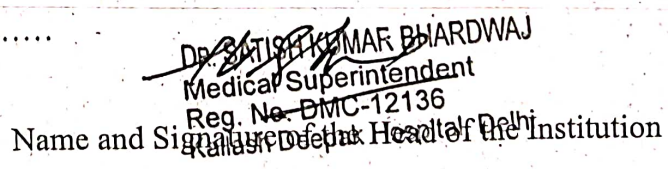 .....
Dr. SATISH KUMAR BHARDWAJ
Medical Superintendent
Reg. No. DMC-12136
Kailash Deepak Hospital, Delhi
Name and Signature of the Head of the Institution